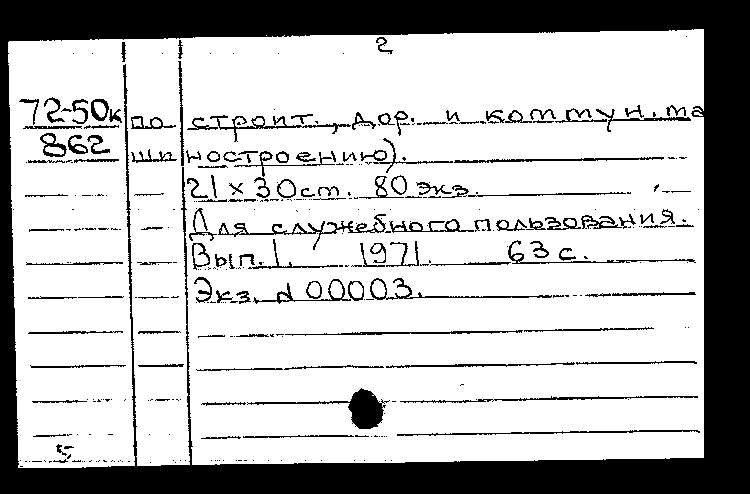 2
72-50к по строит., дор. и коммун. ма
862 ши ностроению).
21 x 30 см. 80 экз.
Для служебного пользования.
Вып. 1. 1971. 63 с.
Экз. № 00003.
5